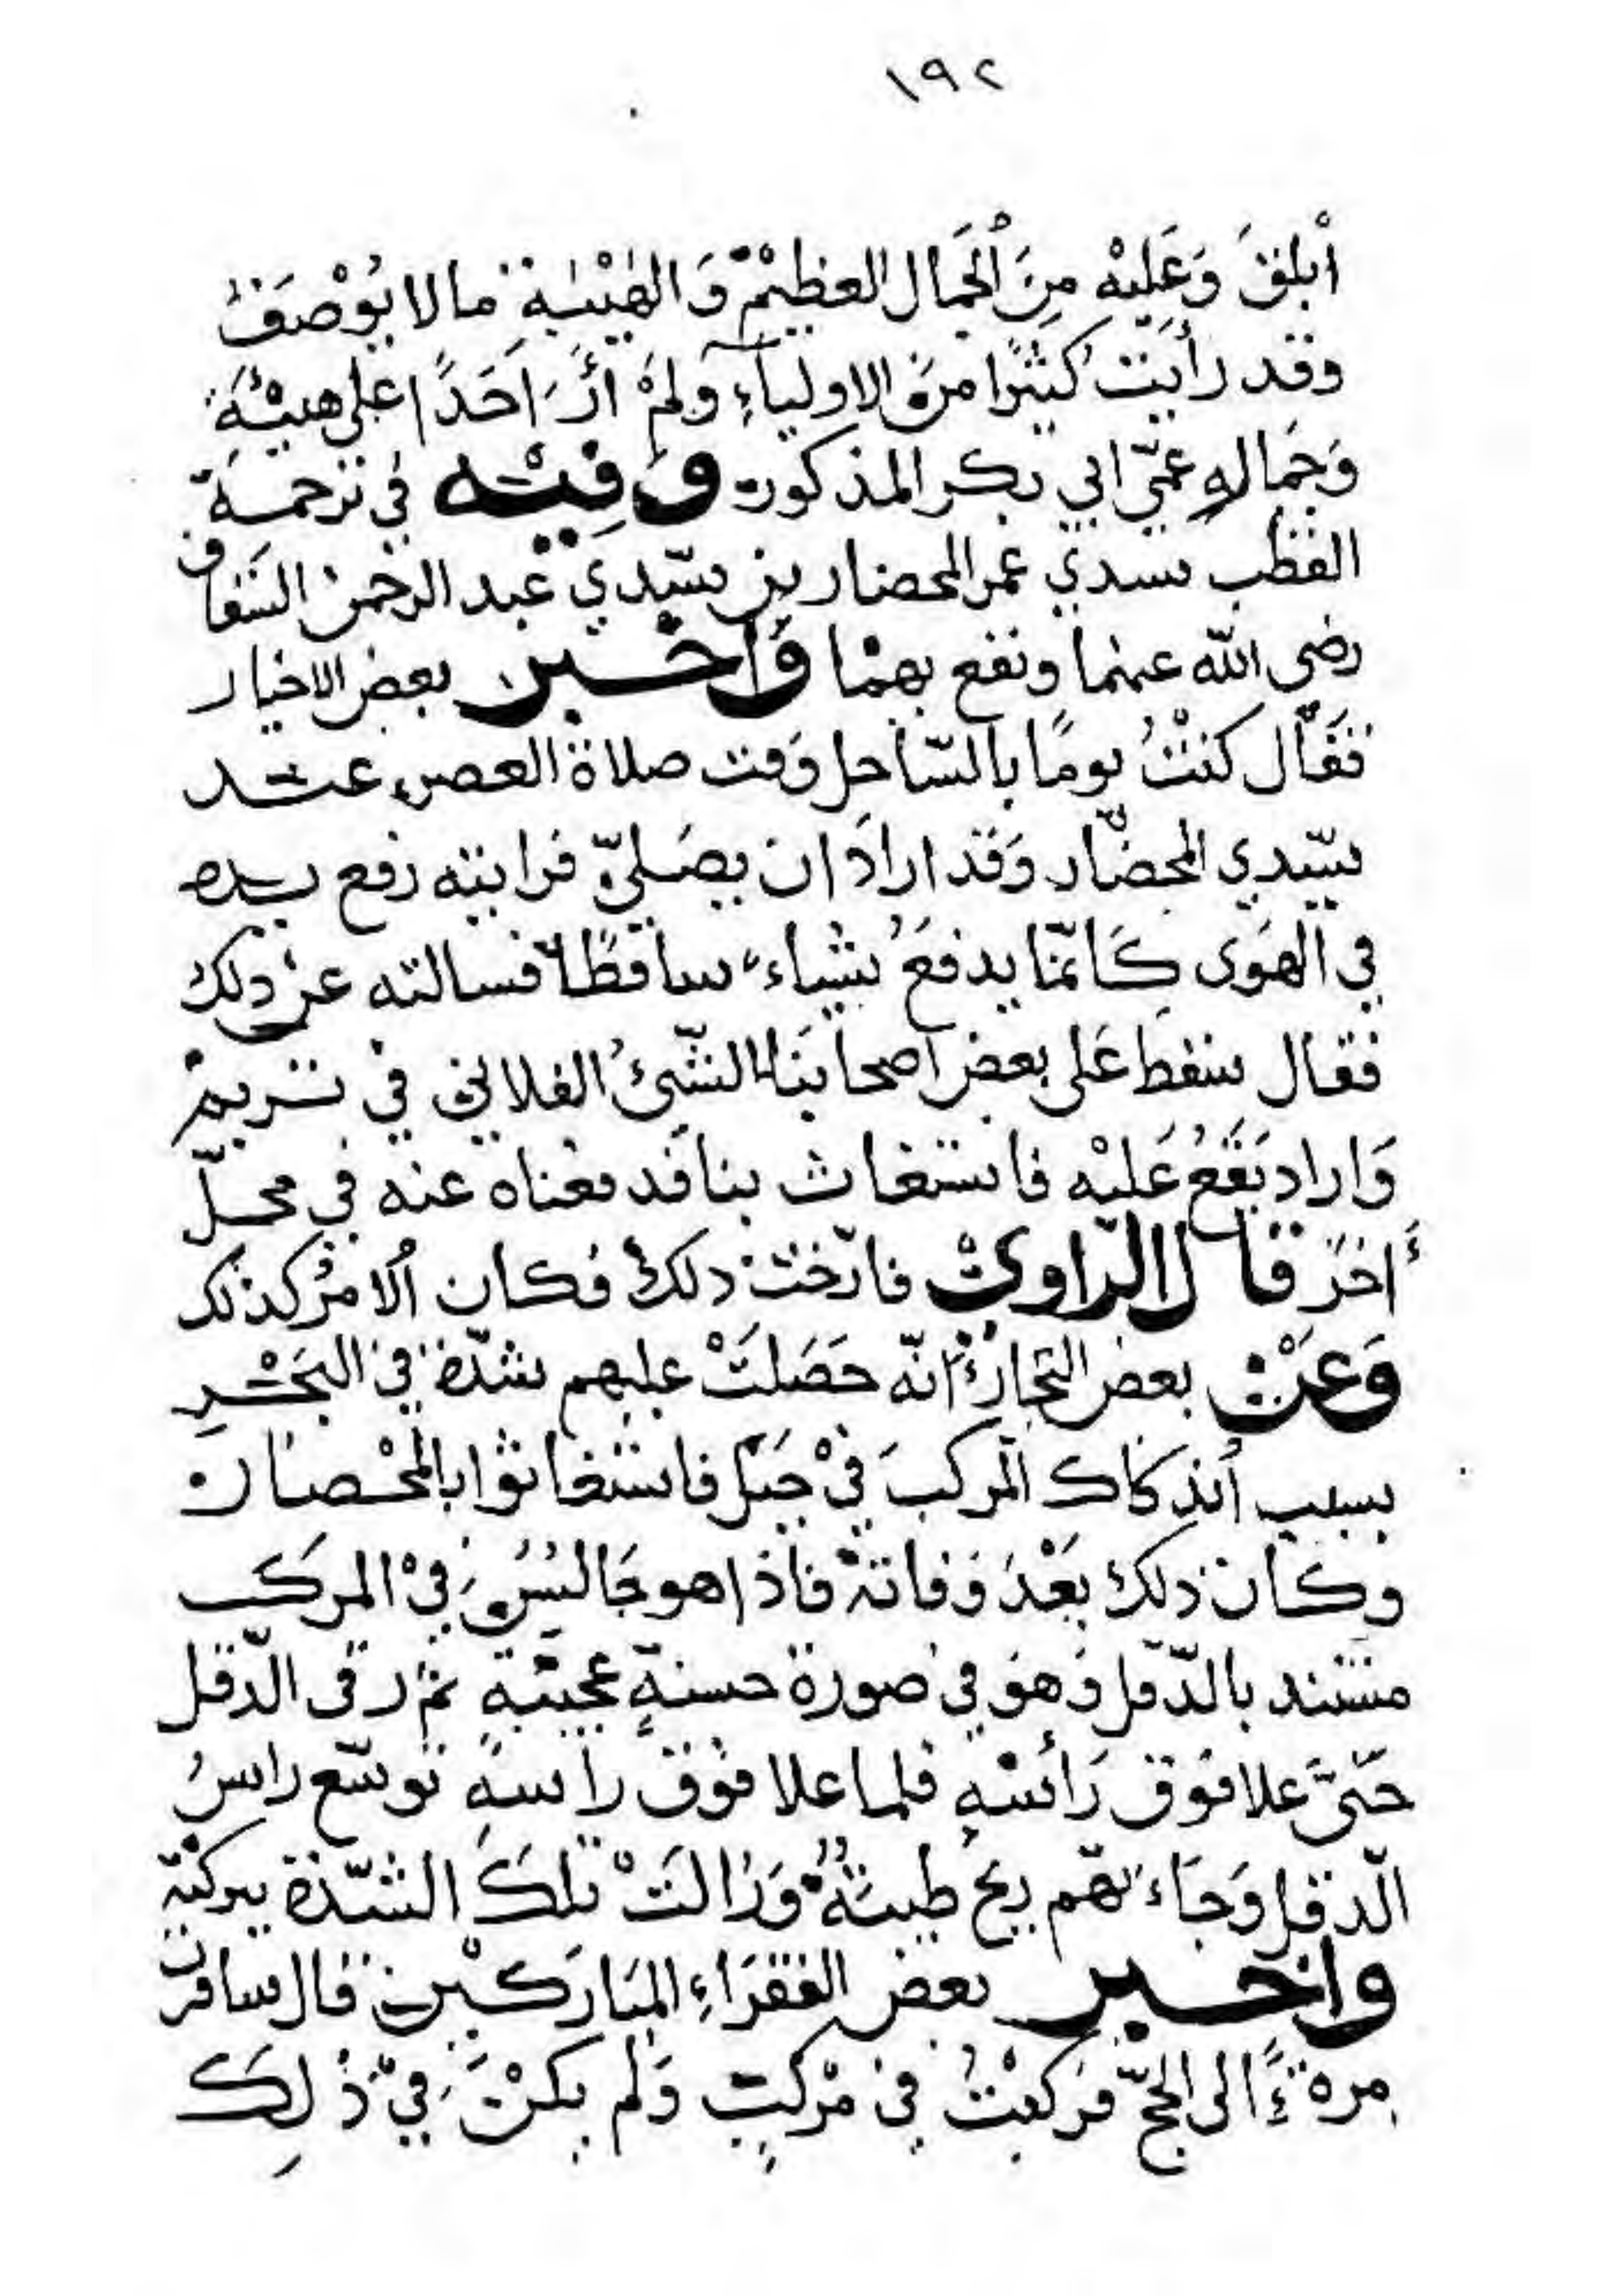 ١٩٢
أبلق وَعَليْهِ مِنَ الجَمال العظيْم وَالهَيْبةِ ما لا يُوْصَفُ
وقد رأيت كثيْرًا من الاولياءِ وَلمْ ارَ احَدًا على هيبْةِ
وَجَمالهِ عمّي ابي بكر المذكور وَفِيْه في ترجمة
القطب سيدي عمر المحضار بن سيّدي عبد الرحمن السَقاف
رضي الله عنهما ونفع بهما وَاخْبر بعض الاخيار
فقَال كنْتُ يومًا بالسّاحِل وَقت صلاة العصر عند
سيّدي المحضَار وَقد ارادَ ان يصَليّ فرايته رفع يده
في الهَوَى كَانّما يدفعُ بشياء ساقطًا فسالته عنْ ذلك
فقال سقط عَلى بعض اصحابنَا الشّيءُ الفلاني في تريم
وَاراد يَقَعُ عَليْه فاستغاث بنا فدفعناه عنه في محلّ
أَاخرَ قال الرّاويْ فارّختْ ذلك فكان الامرْ كذلك
وَعَنْ بعض التجارْ انّه حَصَلَتْ عليهم شدّة في البَحْرِ
بسبب أنذكاك المركبَ فيْ جَبَل فاستغاثوا بالمحْضار
وكان ذلك بَعْدَ وَفاتهْ فاذا هو جَالسُ فيْ المركَب
مستند بالدّقل وَهوَ في صورة حسنةٍ عجيبْةٍ ثم رقى الّدقل
حَتىَّ عَلا فوق رَأسْهِ فلما علا فوق راسهِ توسّع راسُ
الّدقل وَجَاءَتهّم ريحُ طيبْةُ وَزالَتْ تلكَ الشدّة ببركتْه
واخبر بعض الفقرَاءِ المبَاركيْن قال سافرت
مرة ءً الى الحجّ فركبْتُ في مرْكبٍ وَلم يكنْ فيْ ذلِكَ